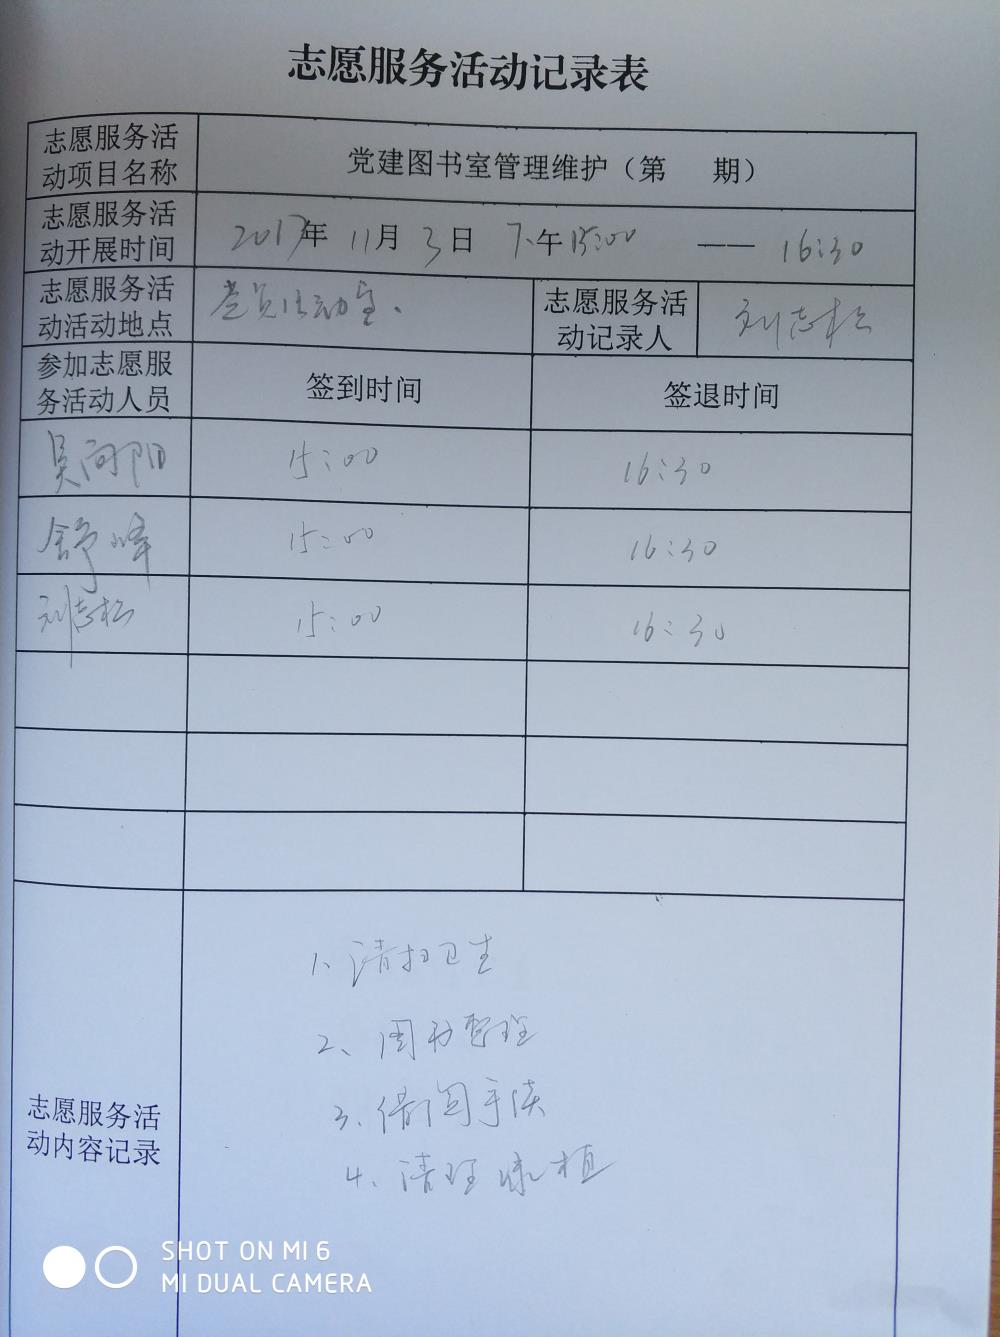 志愿服务活动记录表
志愿服务活
动项目名称
党建图书室管理维护（第 期）
志愿服务活
动开展时间
2017年 11月 3日 下午 15:00 —— 16:30
志愿服务活
动活动地点
党员活动室.
志愿服务活
动记录人
刘志松
参加志愿服
务活动人员
签到时间
签退时间
吴向阳 15:00 16:30
舒峰 15:00 16:30
刘志松 15:00 16:30
志愿服务活
动内容记录
1、清扫卫生
2、图书整理
3、借阅手续
4、清理绿植
SHOT ON MI 6
MI DUAL CAMERA